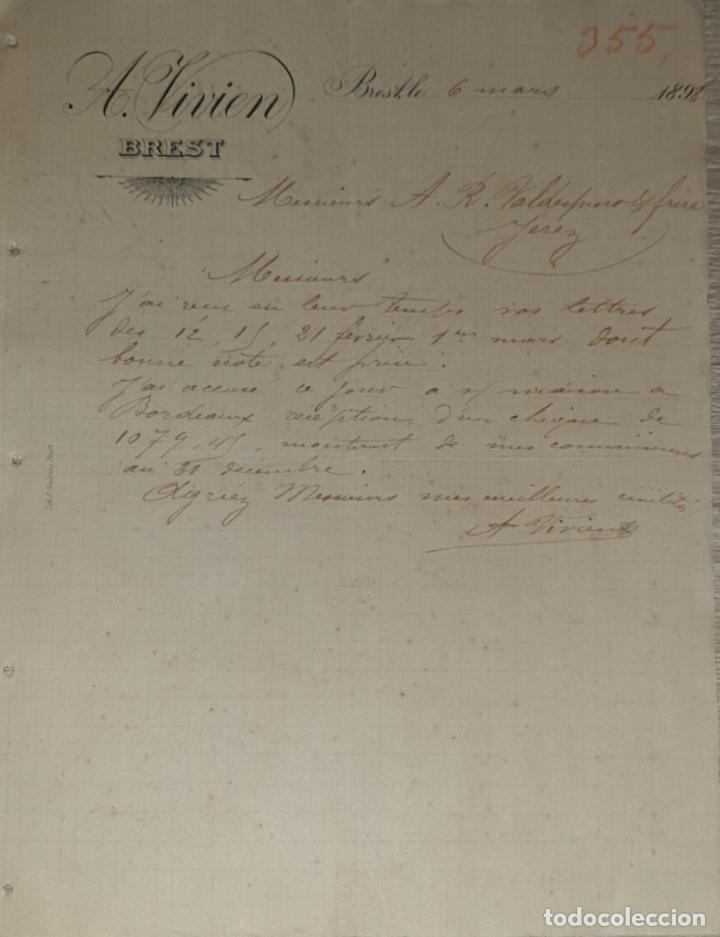 355
A. Vivien
BREST
Brest, le 6 mars 1898
Messieurs A. R. Valdespino & frère
Jerez
Messieurs
J'ai reçu en leur temps vos lettres
des 12, 15, 21 février 1er mars dont
bonne note est prise.
J'ai accusé ce jour à v/ maison à
Bordeaux réception d'un chèque de
1079,45, montant de mes commissions
au 31 décembre.
Agréez Messieurs mes meilleures civilités
A Vivien
todocoleccion.net